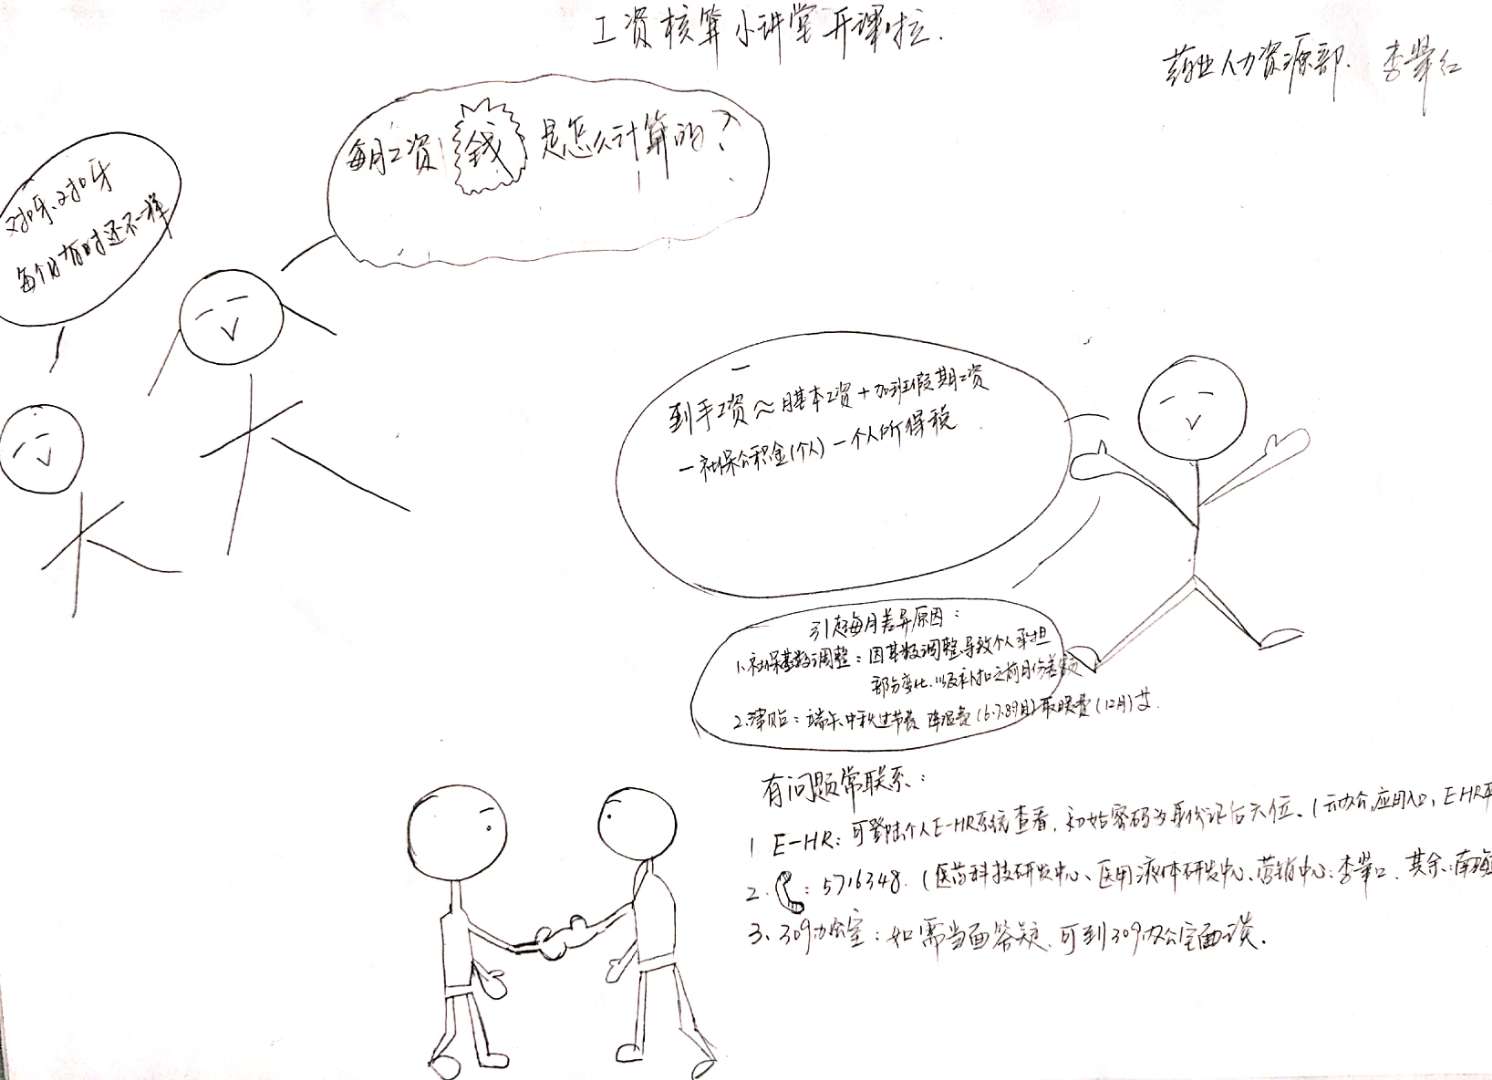 工资核算小讲堂开课啦.
药业人力资源部. 李翠红
每月工资 钱 是怎么计算的?
对呀、对呀
每个月有时还不一样
到手工资≈月基本工资+加班假期工资
-社保公积金(个人)-个人所得税
引起每月差异原因:
1、社保基数调整:因基数调整导致个人承担
部分变化.以及补扣之前月份差额
2.津贴:端午、中秋过节费 降温费(6.7.8.9月)取暖费(12月)
有问题常联系:
1 E-HR:可登陆个人E-HR系统查看,初始密码为身份证后六位、(云办公,应用入口,E-HR
2. : 5716348. (医药科技研发中心、医用液体研发中心、营销中心:李翠红. 其余:
3、309办公室:如需当面答疑,可到309办公室面谈.